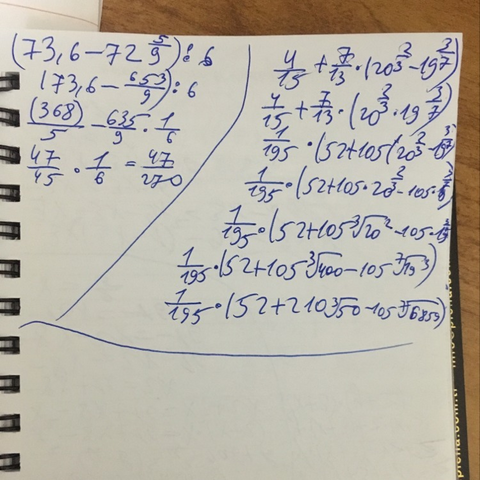 (73,6 - 72 5/9) : 6
(73,6 - 653/9) : 6
(368)/5 - 635/9 · 1/6
47/45 · 1/6 = 47/270
4/15 + 7/13 · (20 2/3 - 19 3/7)
4/15 + 7/13 · (20 2/3 · 19 3/7)
1/195 · (52 + 105(20 2/3 - 19 3/7)
1/195 · (52 + 105 · 20 2/3 - 105 ·
1/195 · (52 + 105 ³√20² - 105 ·
1/195 · (52 + 105 ³√400 - 105 ⁷√19³)
1/195 · (52 + 210 ³√50 - 105 ⁷√6859)